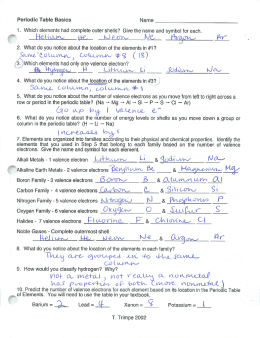 Periodic Table Basics Name
1. Which elements had complete outer shells? Give the name and symbol for each.
Helium He, Neon Ne Argon Ar
2. What do you notice about the location of the elements in #1?
Same column, column #8 (18)
3. Which elements had only one valence electron?
Hydrogen H Lithium Li Sodium Na
4. What do you notice about the location of the elements in #3?
Same column, column #1
5. What do you notice about the number of valence electrons as you move from left to right across a
row or period in the periodic table? (Na → Mg → Al → Si → P → S → Cl → Ar)
Go up by 1 valence e-
6. What do you notice about the number of energy levels or shells as you move down a group or
column in the periodic table? (H → Li → Na)
Increases by 1
7. Elements are organized into families according to their physical and chemical properties. Identify the
elements that you used in Step 5 that belong to each family based on the number of valence
electrons. Give the name and symbol for each element.
Alkali Metals - 1 valence electron Lithium Li & Sodium Na
Alkaline Earth Metals - 2 valence electrons Beryllium Be & Magnesium Mg
Boron Family - 3 valence electrons Boron B & Aluminum Al
Carbon Family - 4 valence electrons Carbon C & Silicon Si
Nitrogen Family - 5 valence electrons Nitrogen N & Phosphorus P
Oxygen Family - 6 valence electrons Oxygen O & Sulfur S
Halides - 7 valence electrons Fluorine F & Chlorine Cl
Noble Gases - Complete outermost shell
Helium He, Neon Ne, & Argon Ar
8. What do you notice about the location of the elements in each family?
They are grouped in to the same
column
9. How would you classify hydrogen? Why?
not a metal, not really a nonmetal
has properties of both (more nonmetal)
10. Predict the number of valence electrons for each element based on its location in the Periodic Table
of Elements. You will need to use the table in your textbook.
Barium = 2 Lead = 4 Xenon = 8 Potassium = 1
T. Trimpe 2002